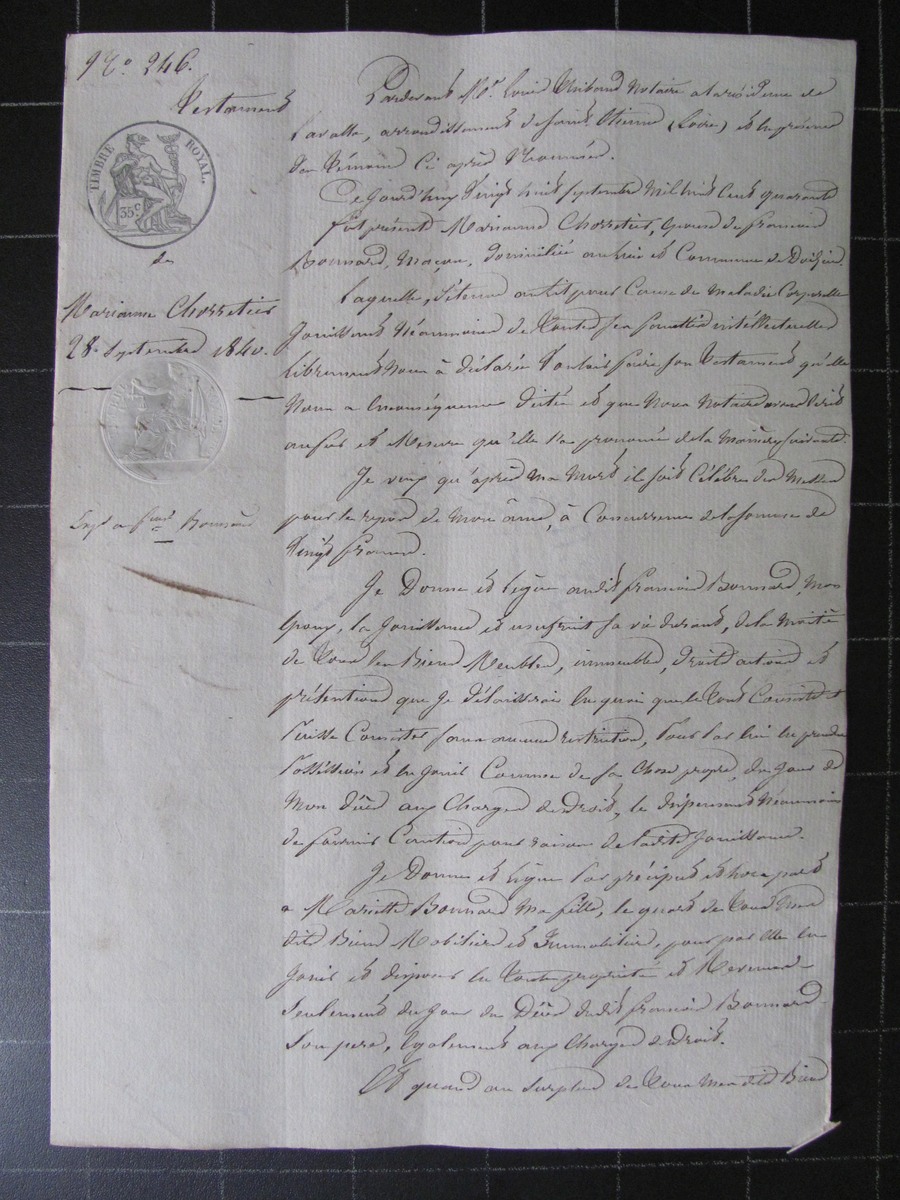 No. 246.
Testament
TIMBRE ROYAL.
35 c.
de
Marianne Chorretier
28. Septembre 1840.
Exp. a f. Bonnard
Pardevant Me. Louis Thibaud Notaire a la résidence de
Lavalla, arrondissement de Saint Etienne (Loire) et en présence
des Témoins ci après nommés.
Cejourd'huy vingt huit septembre mil huit cent quarante
fut présente Marianne Chorretier, épouse de francois
Bonnard, maçon, domiciliée au lieu et Commune de Doizieu.
Laquelle, détenue au lit pour Cause de Maladie Corporelle
Jouissant Néanmoins de toutes ses facultés intellectuelles
librement nous à déclaré vouloir faire son Testament qu'elle
Nous a en conséquence dicté et que Nous Notaire avons écrit
au fur et Mesure qu'elle l'a prononcé de la Manière suivante.
Je veux qu'après ma mort il soit célébré des Messes
pour le repos de mon âme, à Concurrence de la somme de
vingt francs.
Je Donne et lègue audit francois Bonnard, mon
époux, la Jouissance et usufruit sa vie durant, de la Moitié
de tous les Biens Meubles, immeubles, droits actions et
prétentions que Je délaisserai en quoi que le tout Consiste et
puisse Consister sans aucune restriction, pour par lui en prendre
possession et en Jouir Comme de sa Chose propre, du Jour de
Mon décès aux Charges de Droit, le dispensant Néanmoins
de fournir Caution pour raison de ladite Jouissance.
Je Donne et lègue par préciput et hors part
a Mariette Bonnard ma fille, le quart de tous mes
dits Biens Mobiliers et Immobiliers, pour par elle en
Jouir et disposer en toute propriété et
seulement du Jour du Décès dudit francois Bonnard
son père, également aux Charges de Droit.
Et quand au surplus de tous mes dits Biens